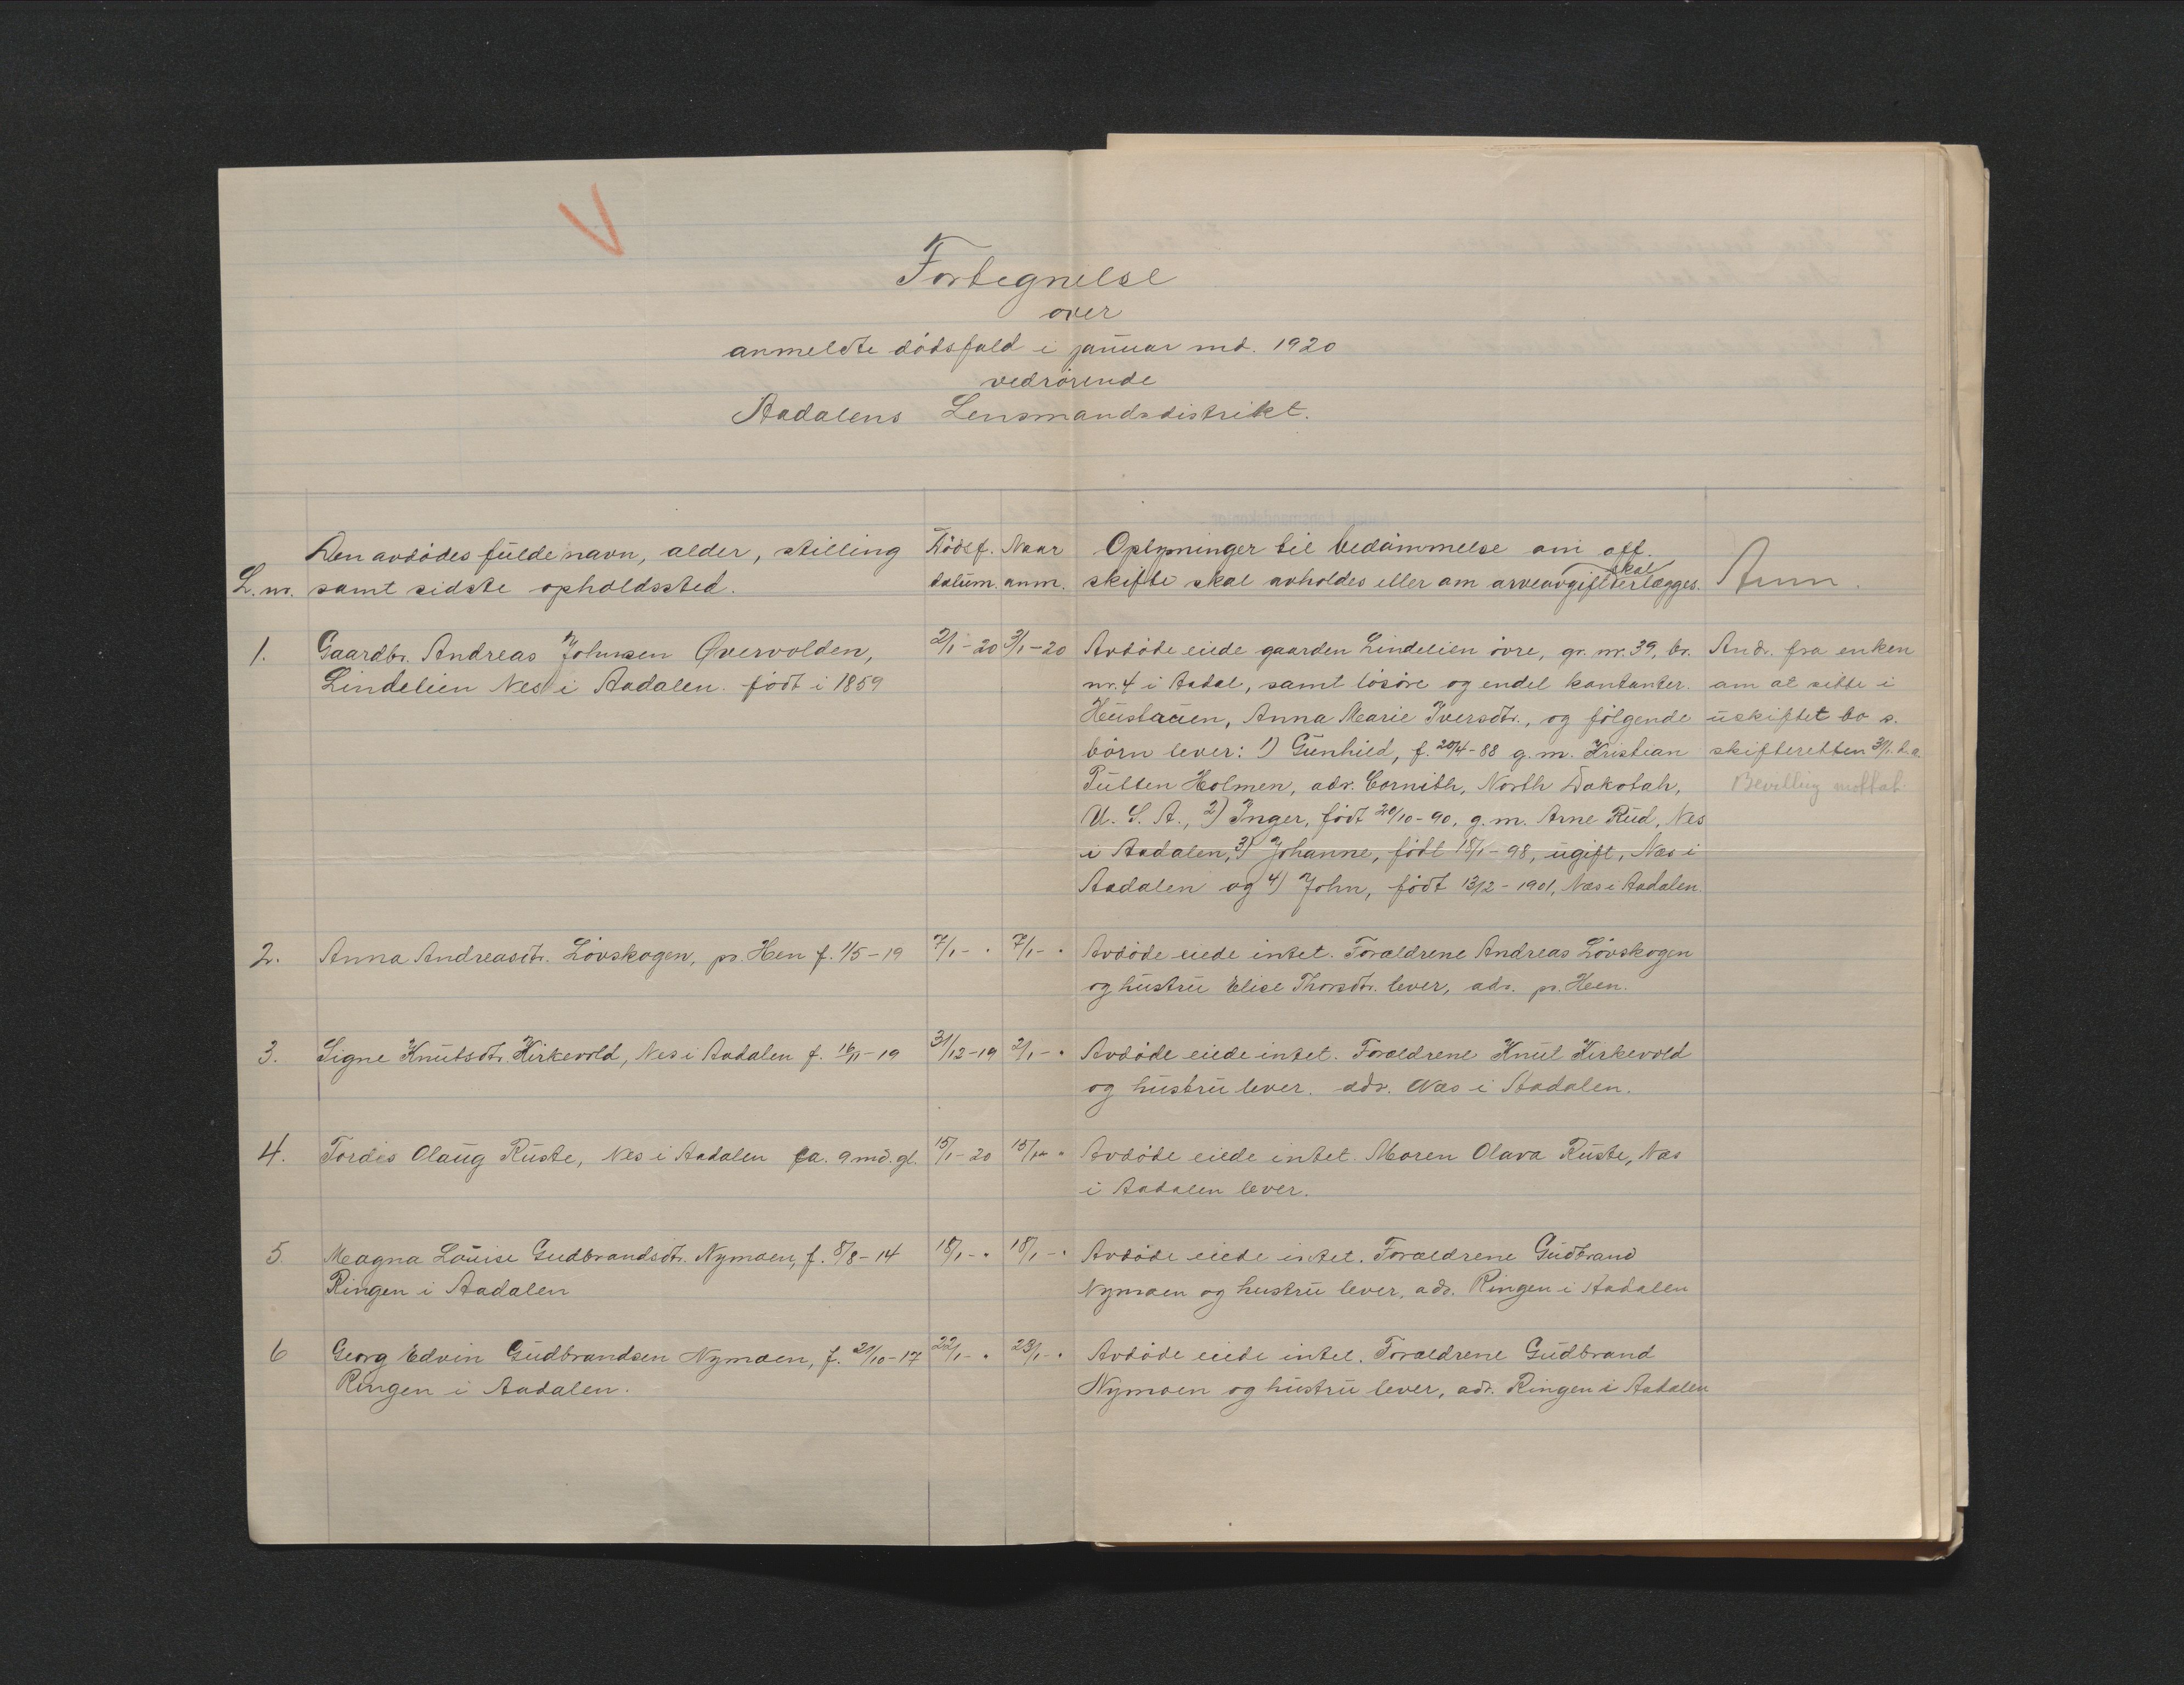 V
Fortegnelse
over
anmeldte dødsfald i januar md. 1920
vedrørende
Aadalens Lensmandsdistrikt.
L. nr. Den avdødes fulde navn, alder, stilling samt sidste opholdssted.
Dødsf. datum.
Naar anm.
Oplysninger til bedømmelse om off.
skifte skal avholdes eller om arveavgift skal erlægges.
Anm.
1. Gaardbr. Andreas Johnsen Øvervolden,
Lindelien Nes i Aadalen. født i 1859
2/1-20 3/1-20
Avdøde eiede gaarden Lindelien øvre, gr. nr. 39, br.
nr. 4 i Aadal, samt løsøre og endel kontanter.
Hustruen, Anna Marie Iversdtr., og følgende
børn lever: 1) Gunhild, f. 20/4-88 g. m. Kristian
Putten Holmen, adr. Cornith, North Dakotah,
U. S. A., 2) Inger, født 20/10-90, g. m. Arne Rud, Nes
i Aadalen, 3) Johanne, født 18/1-98, ugift, Nes i
Aadalen og 4) John, født 13/2-1901, Nes i Aadalen.
Andr. fra enken
om at sitte i
uskiftet bo s.
skifteretten 31/1. d.a.
Bevilling mottat.
2. Anna Andreasdtr. Løvskogen, pr. Hen f. 1/5-19 7/1- " 7/1- "
Avdøde eiede intet. Forældrene Andreas Løvskogen
og hustru Elise Thorsdtr. lever, adr. pr. Heen.
3. Signe Knutsdtr. Kirkevold, Nes i Aadalen f. 16/1-19 31/12-19 2/1- "
Avdøde eiede intet. Forældrene Knut Kirkevold
og hustru lever. adr. Nes i Aadalen.
4. Tordis Olaug Ruste, Nes i Aadalen ca. 9 md. gl. 15/1-20 15/1- "
Avdøde eiede intet. Moren Olava Ruste, Nes
i Aadalen lever.
5. Magna Louise Gudbrandsdtr. Nymoen, f. 8/8-14 18/1- " 18/1- "
Ringen i Aadalen
Avdøde eiede intet. Forældrene Gudbrand
Nymoen og hustru lever, adr. Ringen i Aadalen
6 Georg Edvin Gudbrandsen Nymoen, f. 2/10-17 22/1- " 23/1- "
Ringen i Aadalen.
Avdøde eiede intet. Forældrene Gudbrand
Nymoen og hustru lever, adr. Ringen i Aadalen